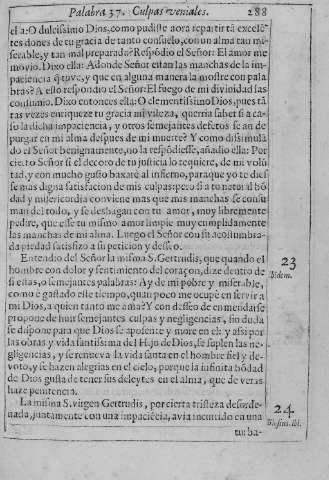 Palabra 37. Culpas veniales. 288
el a: O dulcissimo Dios, como pudiste aora repartir tã excelẽ-
tes dones de tu gracia de tanto consuelo, con un alma tan mi-
serable, y tan mal preparada? Respõdio el Señor: El amor me
movio. Dixo ella: Adonde Señor estan las manchas de la im-
paciencia q̃ tuve, y que en alguna manera la mostre con pala
bras? A esto respondio el Señor: El fuego de mi divinidad las
consumio. Dixo entonces ella: O clementissimo Dios, pues tã
tas vezes enriqueze tu gracia mi vileza, querria saber si a ca-
so la dicha impaciencia, y otros semejantes defetos se an de
purgar en mi alma despues de mi muerte? Y como dissimula
do el Señor benignamente, no la respõdiesse, añadio ella: Por
cierto Señor si el decoro de tu justicia lo requiere, de mi volũ
tad, y con mucho gusto baxarè al infierno, paraque yo te diesse
se mas digna satisfacion de mis culpas: pero si a tu natural bõ
dad y misericordia conviene mas que mas manchas se consu
man del todo, y se deshagan con tu amor, muy libremente
pedire, que esse tu mismo amor limpie muy cumplidamente
las manchas de mi alma. Luego el Señor con su acostumbra-
da piedad satisfizo a su peticion y desseo.
Entendio del Señor la misma S. Gertrudis, que quando el
hombre con dolor y sentimiento del coraçon, dize dentro de
si estas, o semejantes palabras: Ay de mi pobre y miserable,
como è gastado este tiempo, quan poco me ocupè en servir a
mi Dios, a quien tanto me ama? Y con desseo de enmẽdarse
propone de huir semejantes culpas y negligencias, sin duda
se dispone para que Dios se aposente y more en el: y assi por
las obras y vida santissima del Hijo de Dios, se suplen las ne-
gligencias, y se renueva la vida santa en el hombre fiel y de-
voto, y se hazen alegrias en el cielo, porque la infinita bõdad
de Dios gusta de tener sus deleytes en el alma, que de veras
haze penitencia.
23
Ibidem.
La misma S. virgen Gertrudis, por cierta tristeza desorde-
nada, juntamente con una impaciẽcia, avia incurrido en una
24
Blosius. ibi.
tur ba-